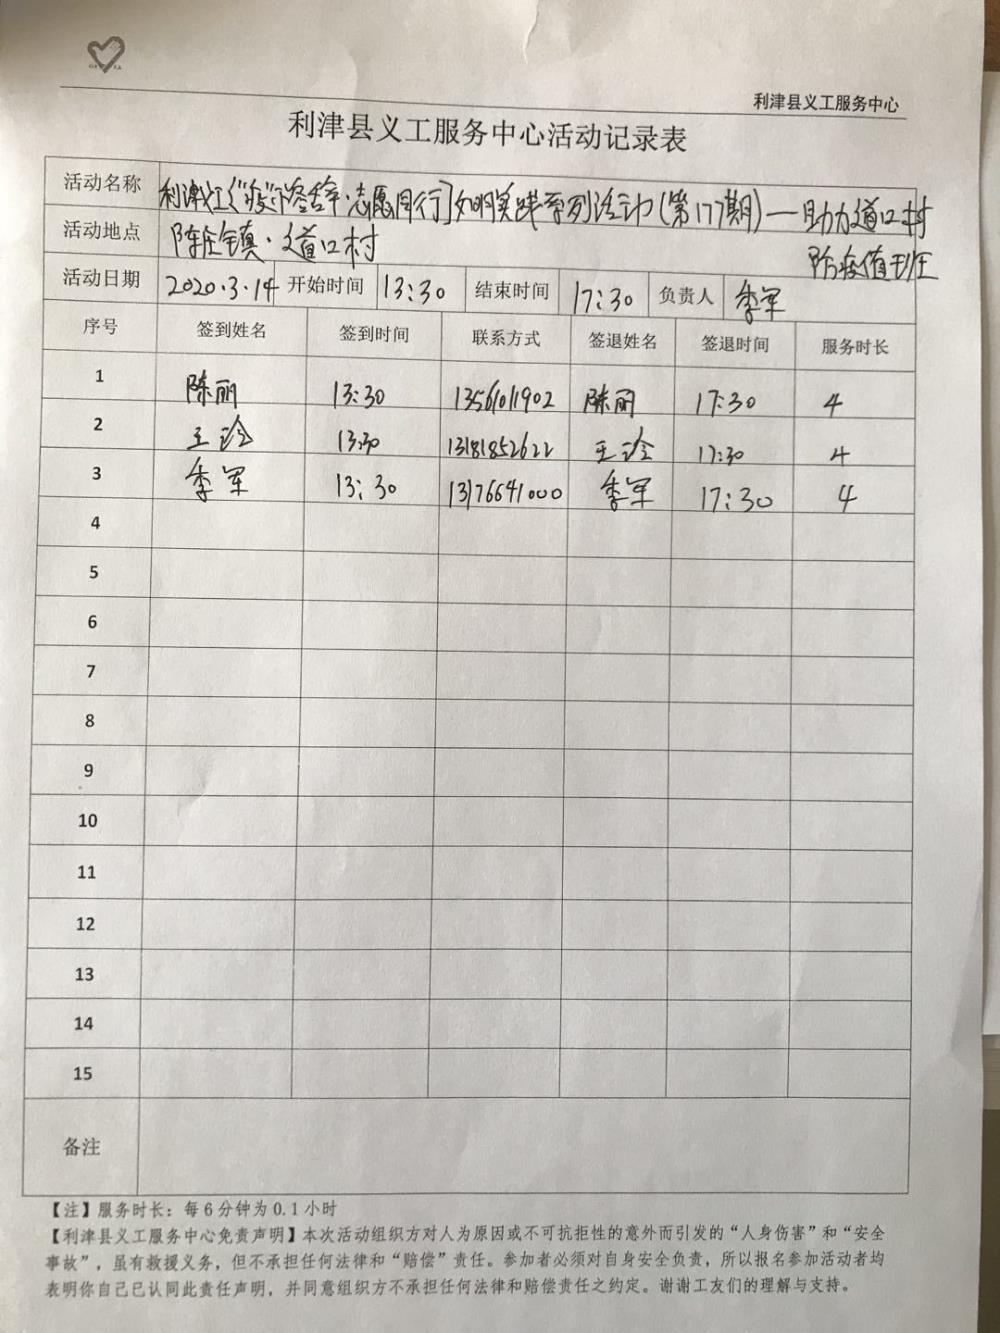 利津县义工服务中心
利津县义工服务中心活动记录表
活动名称 利津义工 志愿同行 实践系列活动(第177期)—助力道口村
防疫值班
活动地点 陈庄镇·道口村
活动日期 2020.3.14 开始时间 13:30 结束时间 17:30 负责人 季军
序号 签到姓名 签到时间 联系方式 签退姓名 签退时间 服务时长
1 陈丽 13:30 13561011902 陈丽 17:30 4
2 王玲 13:30 13181852622 王玲 17:30 4
3 季军 13:30 13176641000 季军 17:30 4
4
5
6
7
8
9
10
11
12
13
14
15
备注
【注】服务时长：每6分钟为0.1小时
【利津县义工服务中心免责声明】本次活动组织方对人为原因或不可抗拒性的意外而引发的“人身伤害”和“安全
事故”，虽有救援义务，但不承担任何法律和“赔偿”责任。参加者必须对自身安全负责，所以报名参加活动者均
表明你自己已认同此责任声明，并同意组织方不承担任何法律和赔偿责任之约定。谢谢工友们的理解与支持。